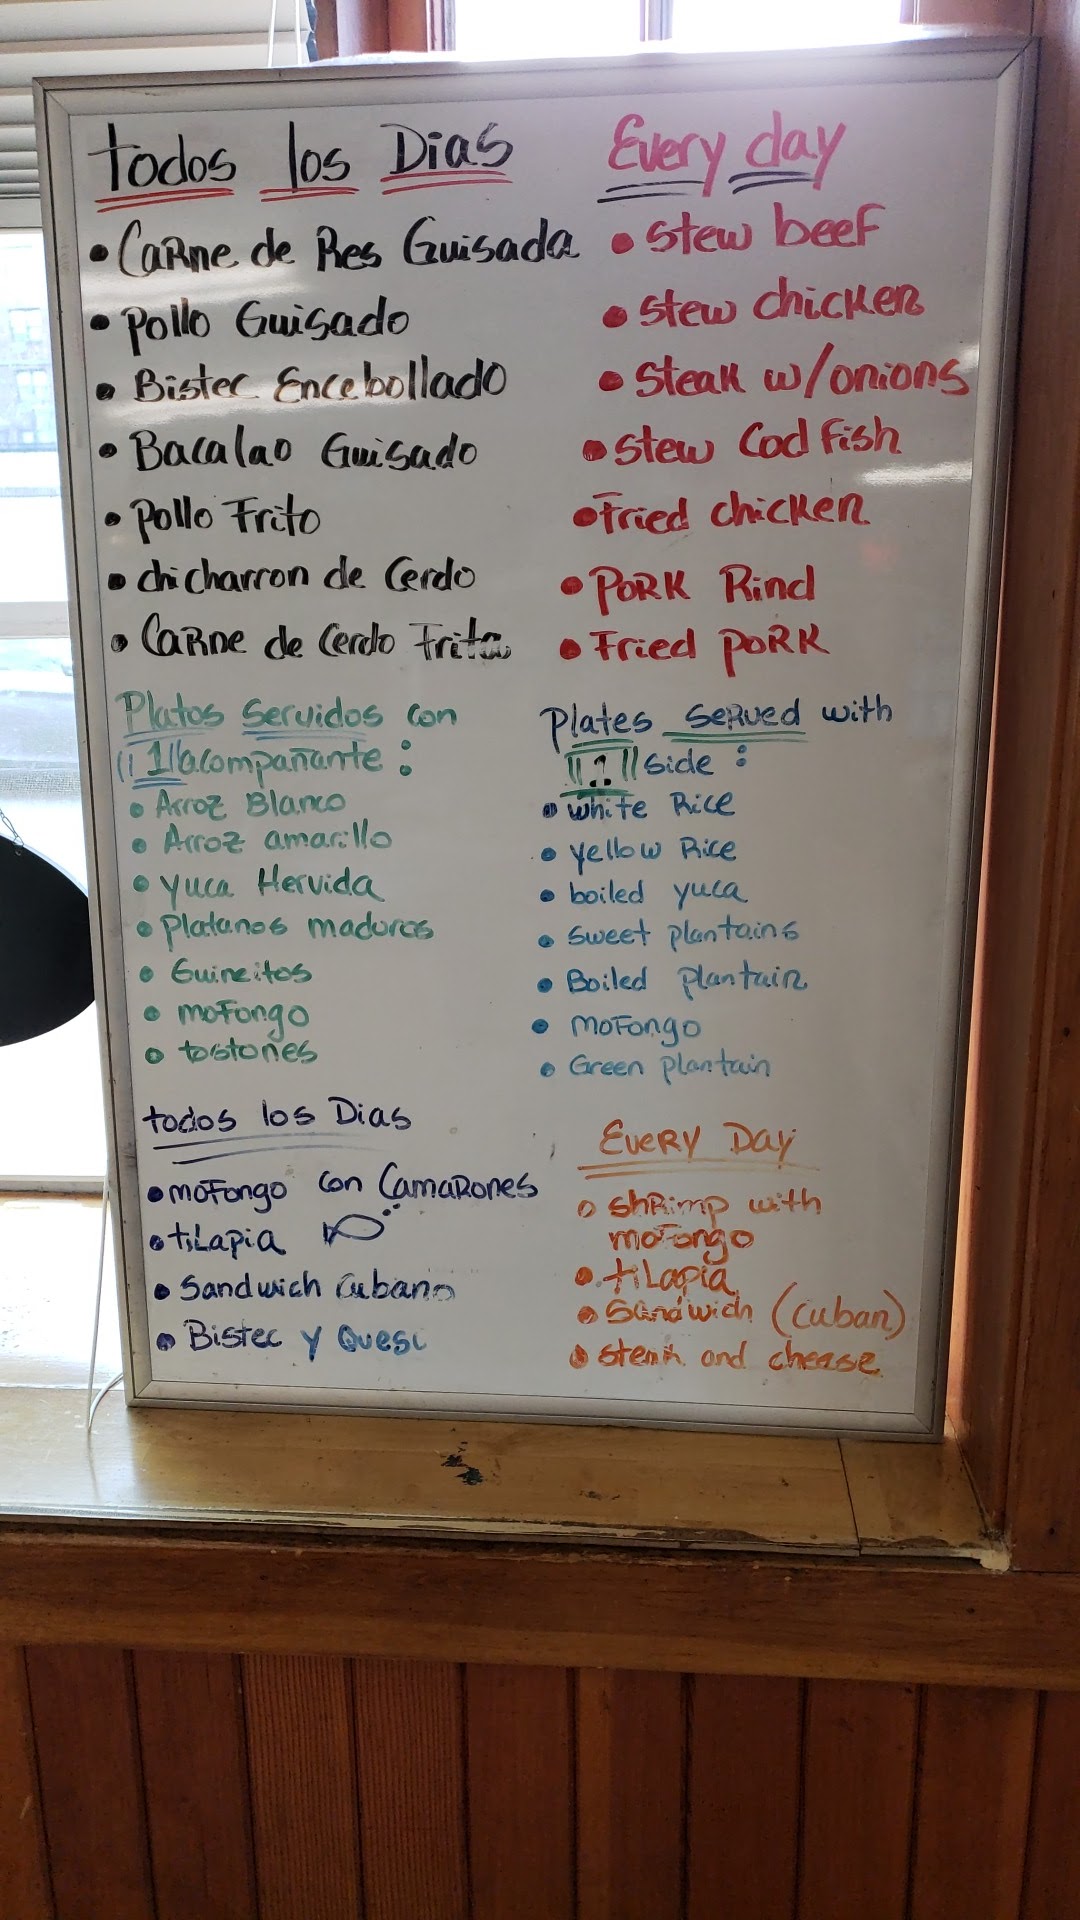 todos los Dias
• Carne de Res Guisada
• Pollo Guisado
• Bistec Encebollado
• Bacalao Guisado
• Pollo Frito
• chicharron de Cerdo
• Carne de Cerdo Frita
Platos Servidos con
"1" acompañante:
• Arroz Blanco
• Arroz amarillo
• yuca Hervida
• Platanos maduros
• Guineitos
• mofongo
• tostones
todos los Dias
• mofongo con Camarones
• tilapia
• Sandwich Cubano
• Bistec y Queso
Every day
• Stew beef
• Stew chicken
• Steak w/onions
• Stew Cod Fish
• Fried chicken
• Pork Rind
• Fried pork
Plates Served with
"1" side:
• white Rice
• yellow Rice
• boiled yuca
• Sweet plantains
• Boiled plantain
• Mofongo
• Green plantain
Every Day
• shrimp with
mofongo
• tilapia
• Sandwich (Cuban)
• steak and cheese